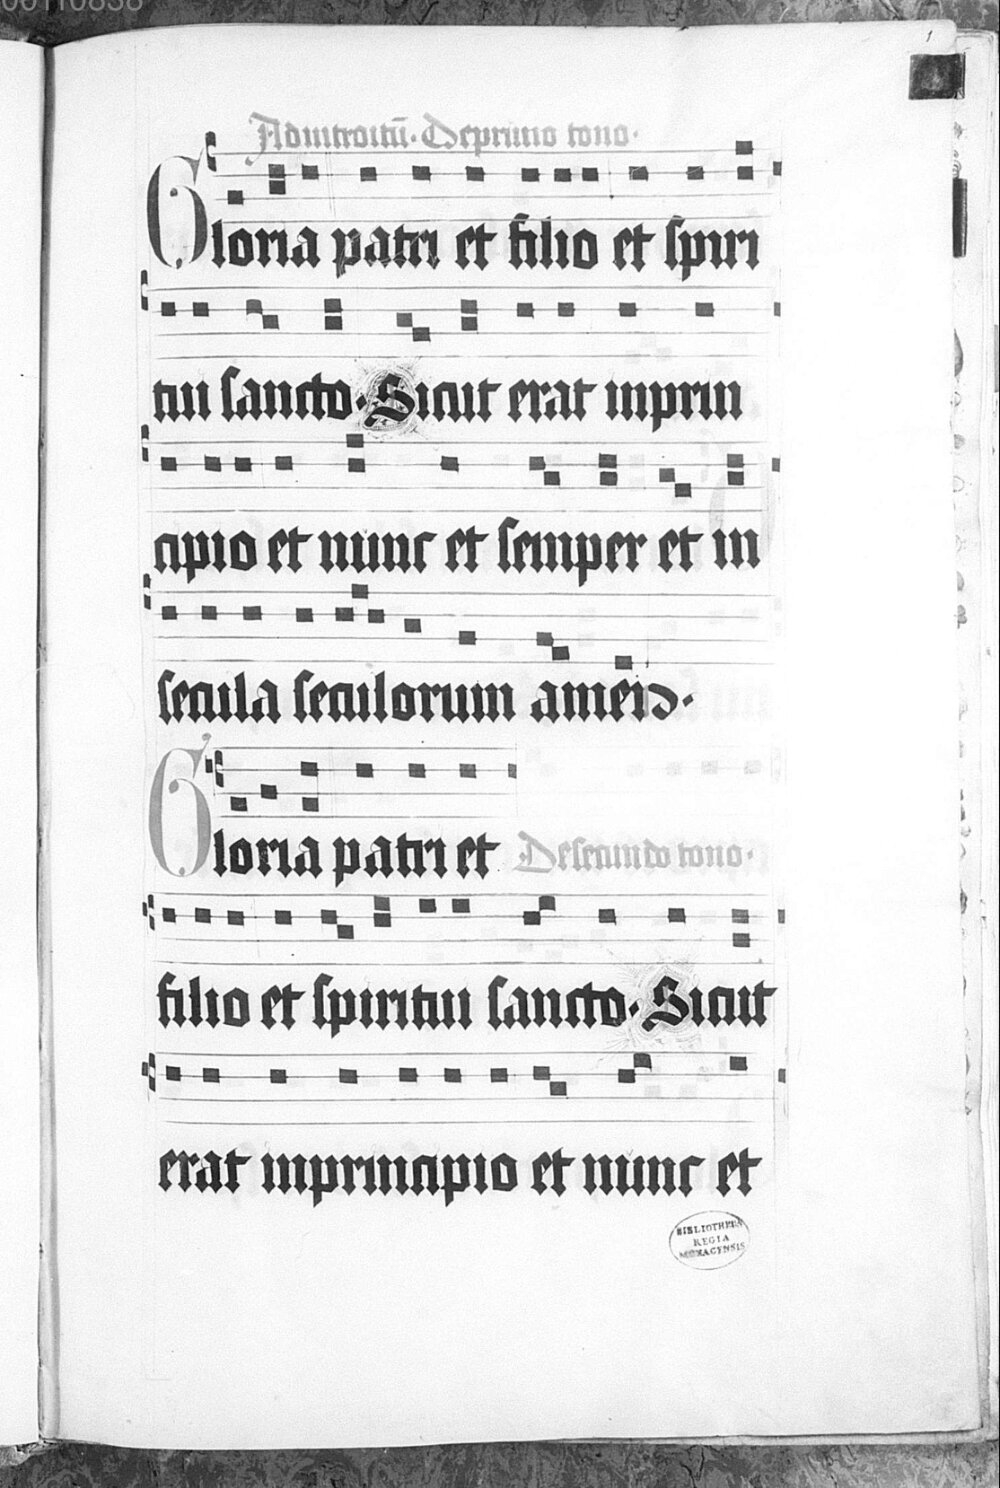 00110838
1
Ad introitū. De primo tono.
Gloria patri et filio et spiri
tui sancto. Sicut erat inprin
cipio et nunc et semper et in
secula seculorum amen.
Gloria patri et De secundo tono.
filio et spiritui sancto. Sicut
erat inprincipio et nunc et
BIBLIOTHECA
REGIA
MONACENSIS